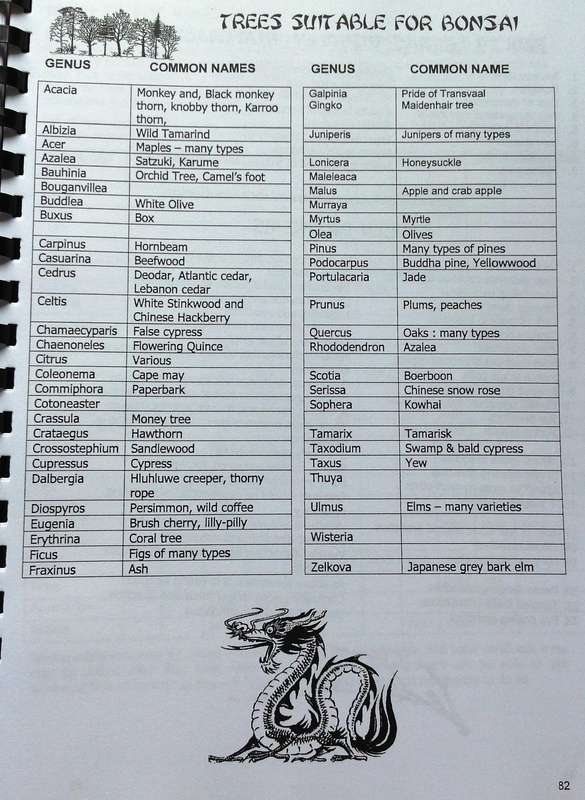 TREES SUITABLE FOR BONSAI
GENUS COMMON NAMES
Acacia Monkey and, Black monkey
thorn, knobby thorn, Karroo
thorn,
Albizia Wild Tamarind
Acer Maples – many types
Azalea Satzuki, Karume
Bauhinia Orchid Tree, Camel's foot
Bouganvillea
Buddlea White Olive
Buxus Box
Carpinus Hornbeam
Casuarina Beefwood
Cedrus Deodar, Atlantic cedar,
Lebanon cedar
Celtis White Stinkwood and
Chinese Hackberry
Chamaecyparis False cypress
Chaenoneles Flowering Quince
Citrus Various
Coleonema Cape may
Commiphora Paperbark
Cotoneaster
Crassula Money tree
Crataegus Hawthorn
Crossostephium Sandlewood
Cupressus Cypress
Dalbergia Hluhluwe creeper, thorny
rope
Diospyros Persimmon, wild coffee
Eugenia Brush cherry, lilly-pilly
Erythrina Coral tree
Ficus Figs of many types
Fraxinus Ash
GENUS COMMON NAME
Galpinia Pride of Transvaal
Gingko Maidenhair tree
Juniperis Junipers of many types
Lonicera Honeysuckle
Maleleaca
Malus Apple and crab apple
Murraya
Myrtus Myrtle
Olea Olives
Pinus Many types of pines
Podocarpus Buddha pine, Yellowwood
Portulacaria Jade
Prunus Plums, peaches
Quercus Oaks : many types
Rhododendron Azalea
Scotia Boerboon
Serissa Chinese snow rose
Sophera Kowhai
Tamarix Tamarisk
Taxodium Swamp & bald cypress
Taxus Yew
Thuya
Ulmus Elms – many varieties
Wisteria
Zelkova Japanese grey bark elm
82